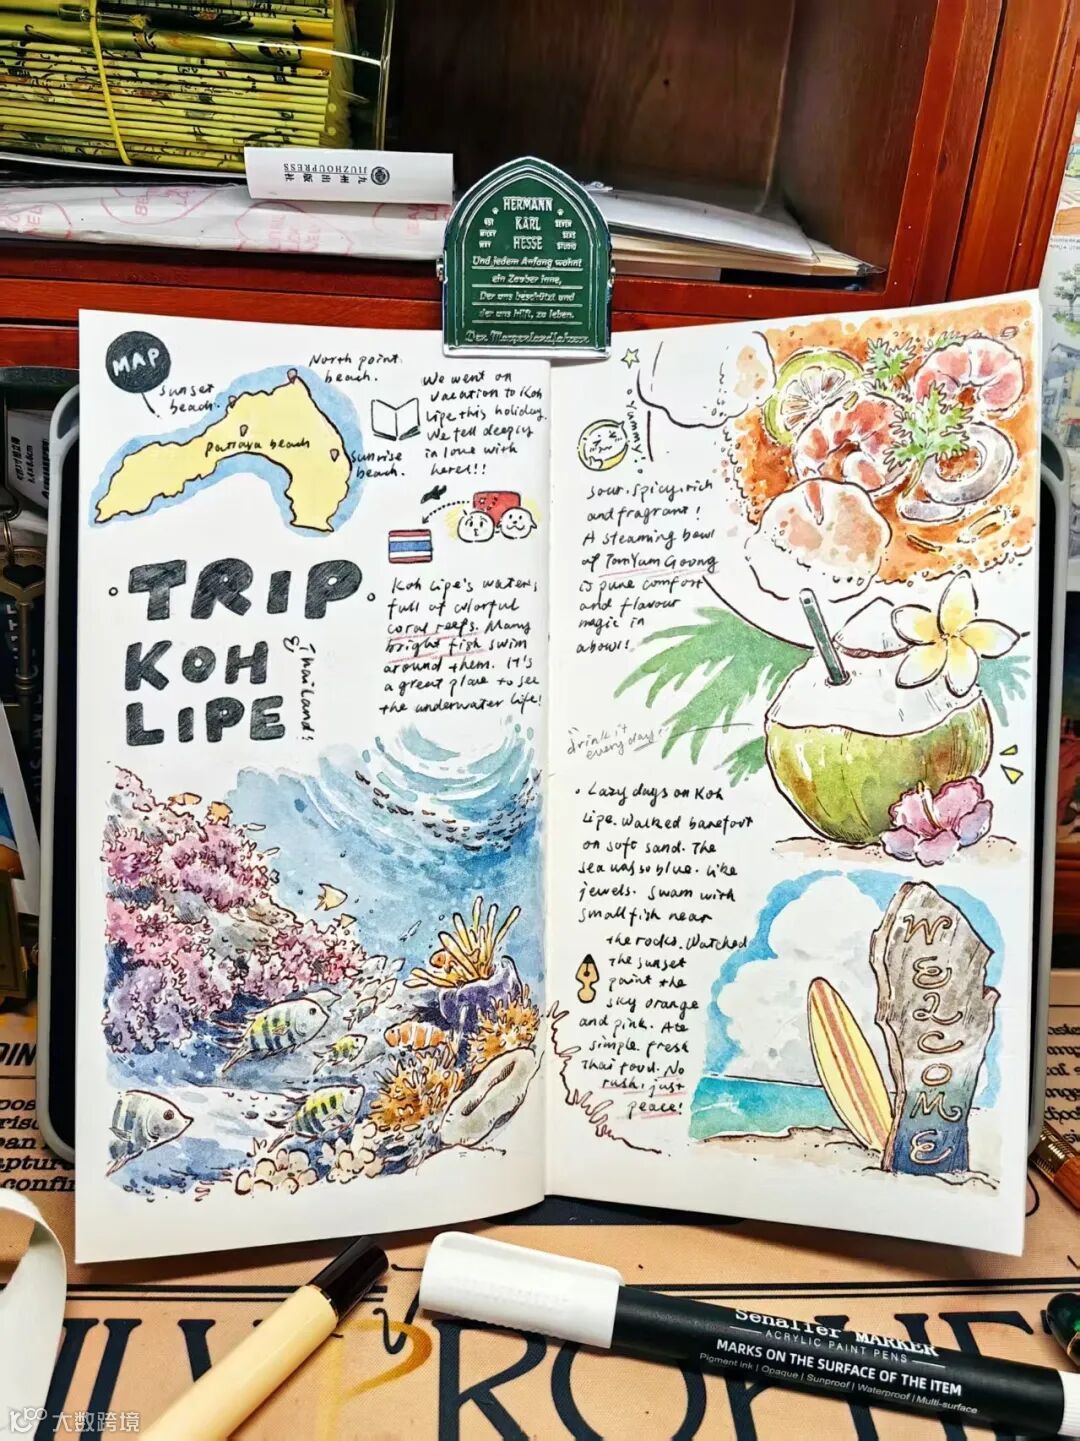 九州出版社
JIUZHOUPRESS
HERMANN
KARL
HESSE
NOT
MILKY
WAY
SEVEN
SEAS
STUDIO
Und jedem Anfang wohnt
ein Zauber inne,
Der uns beschützt und
der uns hilft, zu leben.
Den Morgenlandfahrern
MAP
North point
beach.
sunset
beach.
pattaya beach
sunrise
beach.
We went on
vacation to Koh
Lipe this holiday.
We fell deeply
in love with
here!!!
TRIP
KOH
LIPE
Thailand!
Koh Lipe's waters
full of colorful
coral reefs. Many
bright fish swim
around them. It's
a great place to see
the underwater life!
yummy
sour, spicy, rich
and fragrant!
A steaming bowl
of Tom Yum Goong
is pure comfort
and flavour
magic in
a bowl!
"drink it
every day!"
Lazy days on Koh
Lipe. Walked barefoot
on soft sand. The
sea was so blue. Like
jewels. Swam with
small fish near
the rocks. Watched
the sunset
paint the
sky orange
and pink. Ate
simple fresh
Thai food. No
rush, just
peace!
WELCOME
MARKER
ACRYLIC PAINT PENS
MARKS ON THE SURFACE OF THE ITEM
Pigment Ink | Opaque | Sunproof | Waterproof | Multi-surface
大数跨境